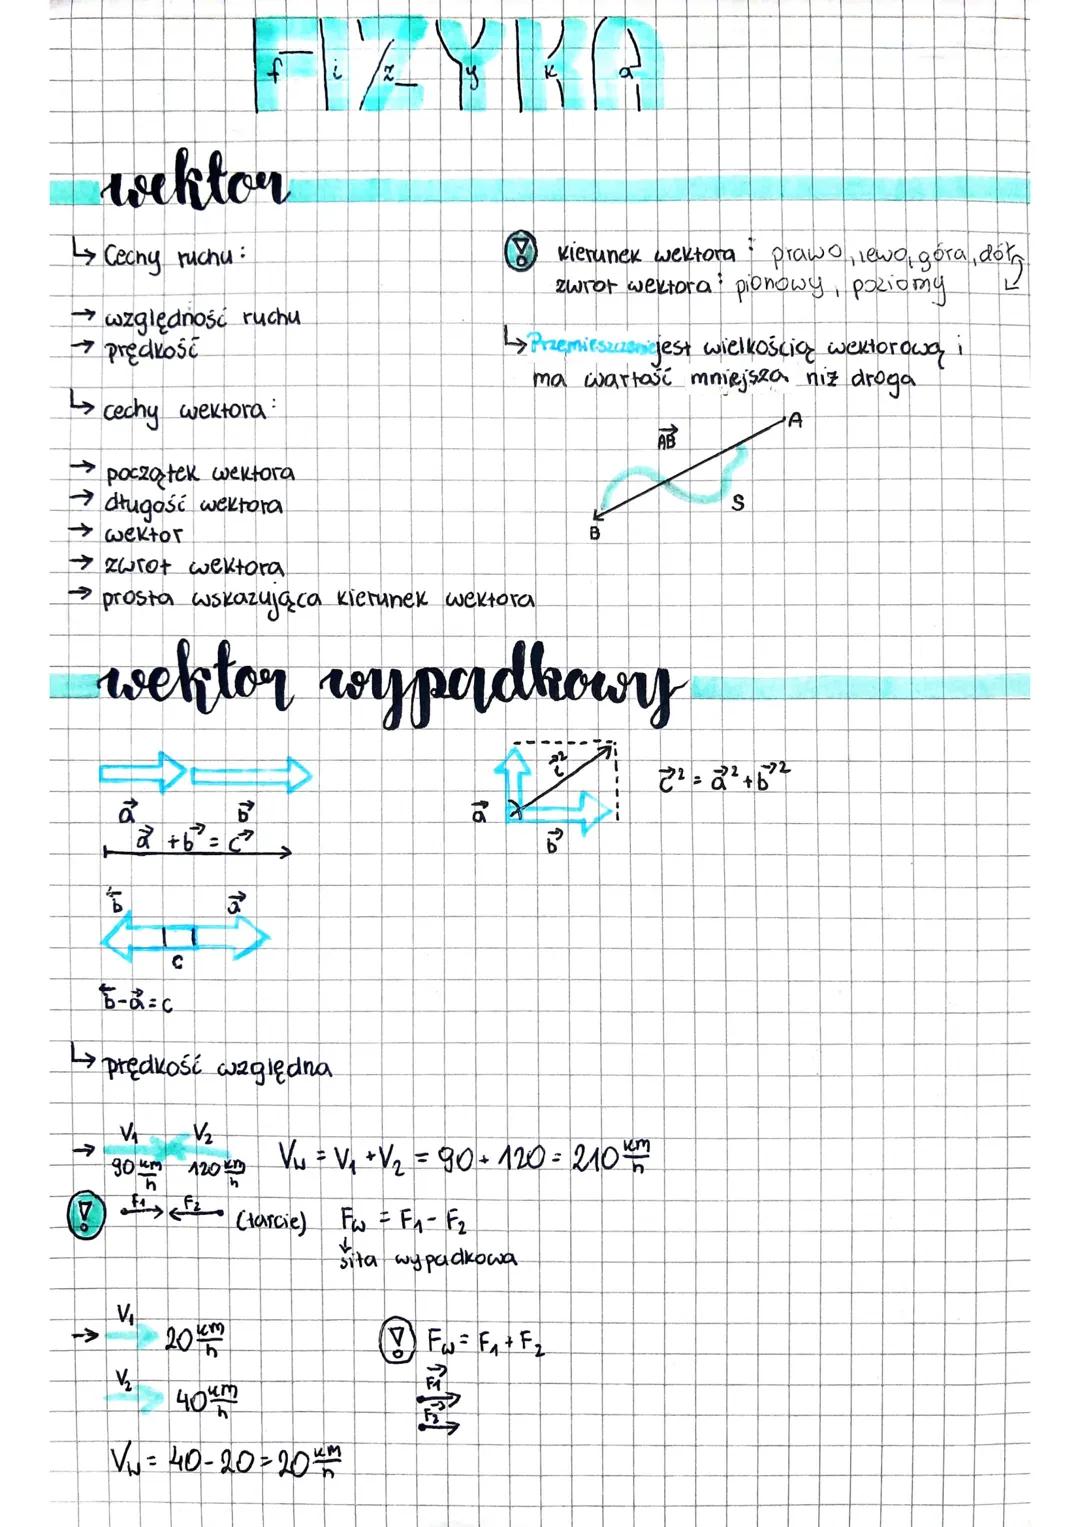 FIZYKA
f i z y k a
wektor
↳ Cechy ruchu:
→ względność ruchu
→ prędkość
↳ cechy wektora:
→ początek wektora
→ długość wektora
→ wektor
→ zwrot wektora
→ prosta wskazująca kierunek wektora
! kierunek wektora: prawo, lewo, góra, dół
zwrot wektora: pionowy, poziomy
↳ Przemieszczenie jest wielkością wektorową i
ma wartość mniejsza niż droga
A
AB→
S
B
wektor wypadkowy
a→ b→
a→ + b→ = c→
b← a→
c
b← - a→ = c
a→
b→
c→² = a→² + b→²
↳ prędkość względna
→ V₁ V₂
90 km/h 120 km/h Vw = V₁ + V₂ = 90 + 120 = 210 km/h
! F₁ F₂ (tarcie) Fw = F₁ - F₂
↓
siła wypadkowa
→ V₁ 20 km/h
V₂ 40 km/h
Vw = 40 - 20 = 20 km/h
! Fw = F₁ + F₂
F₁→
F₂→